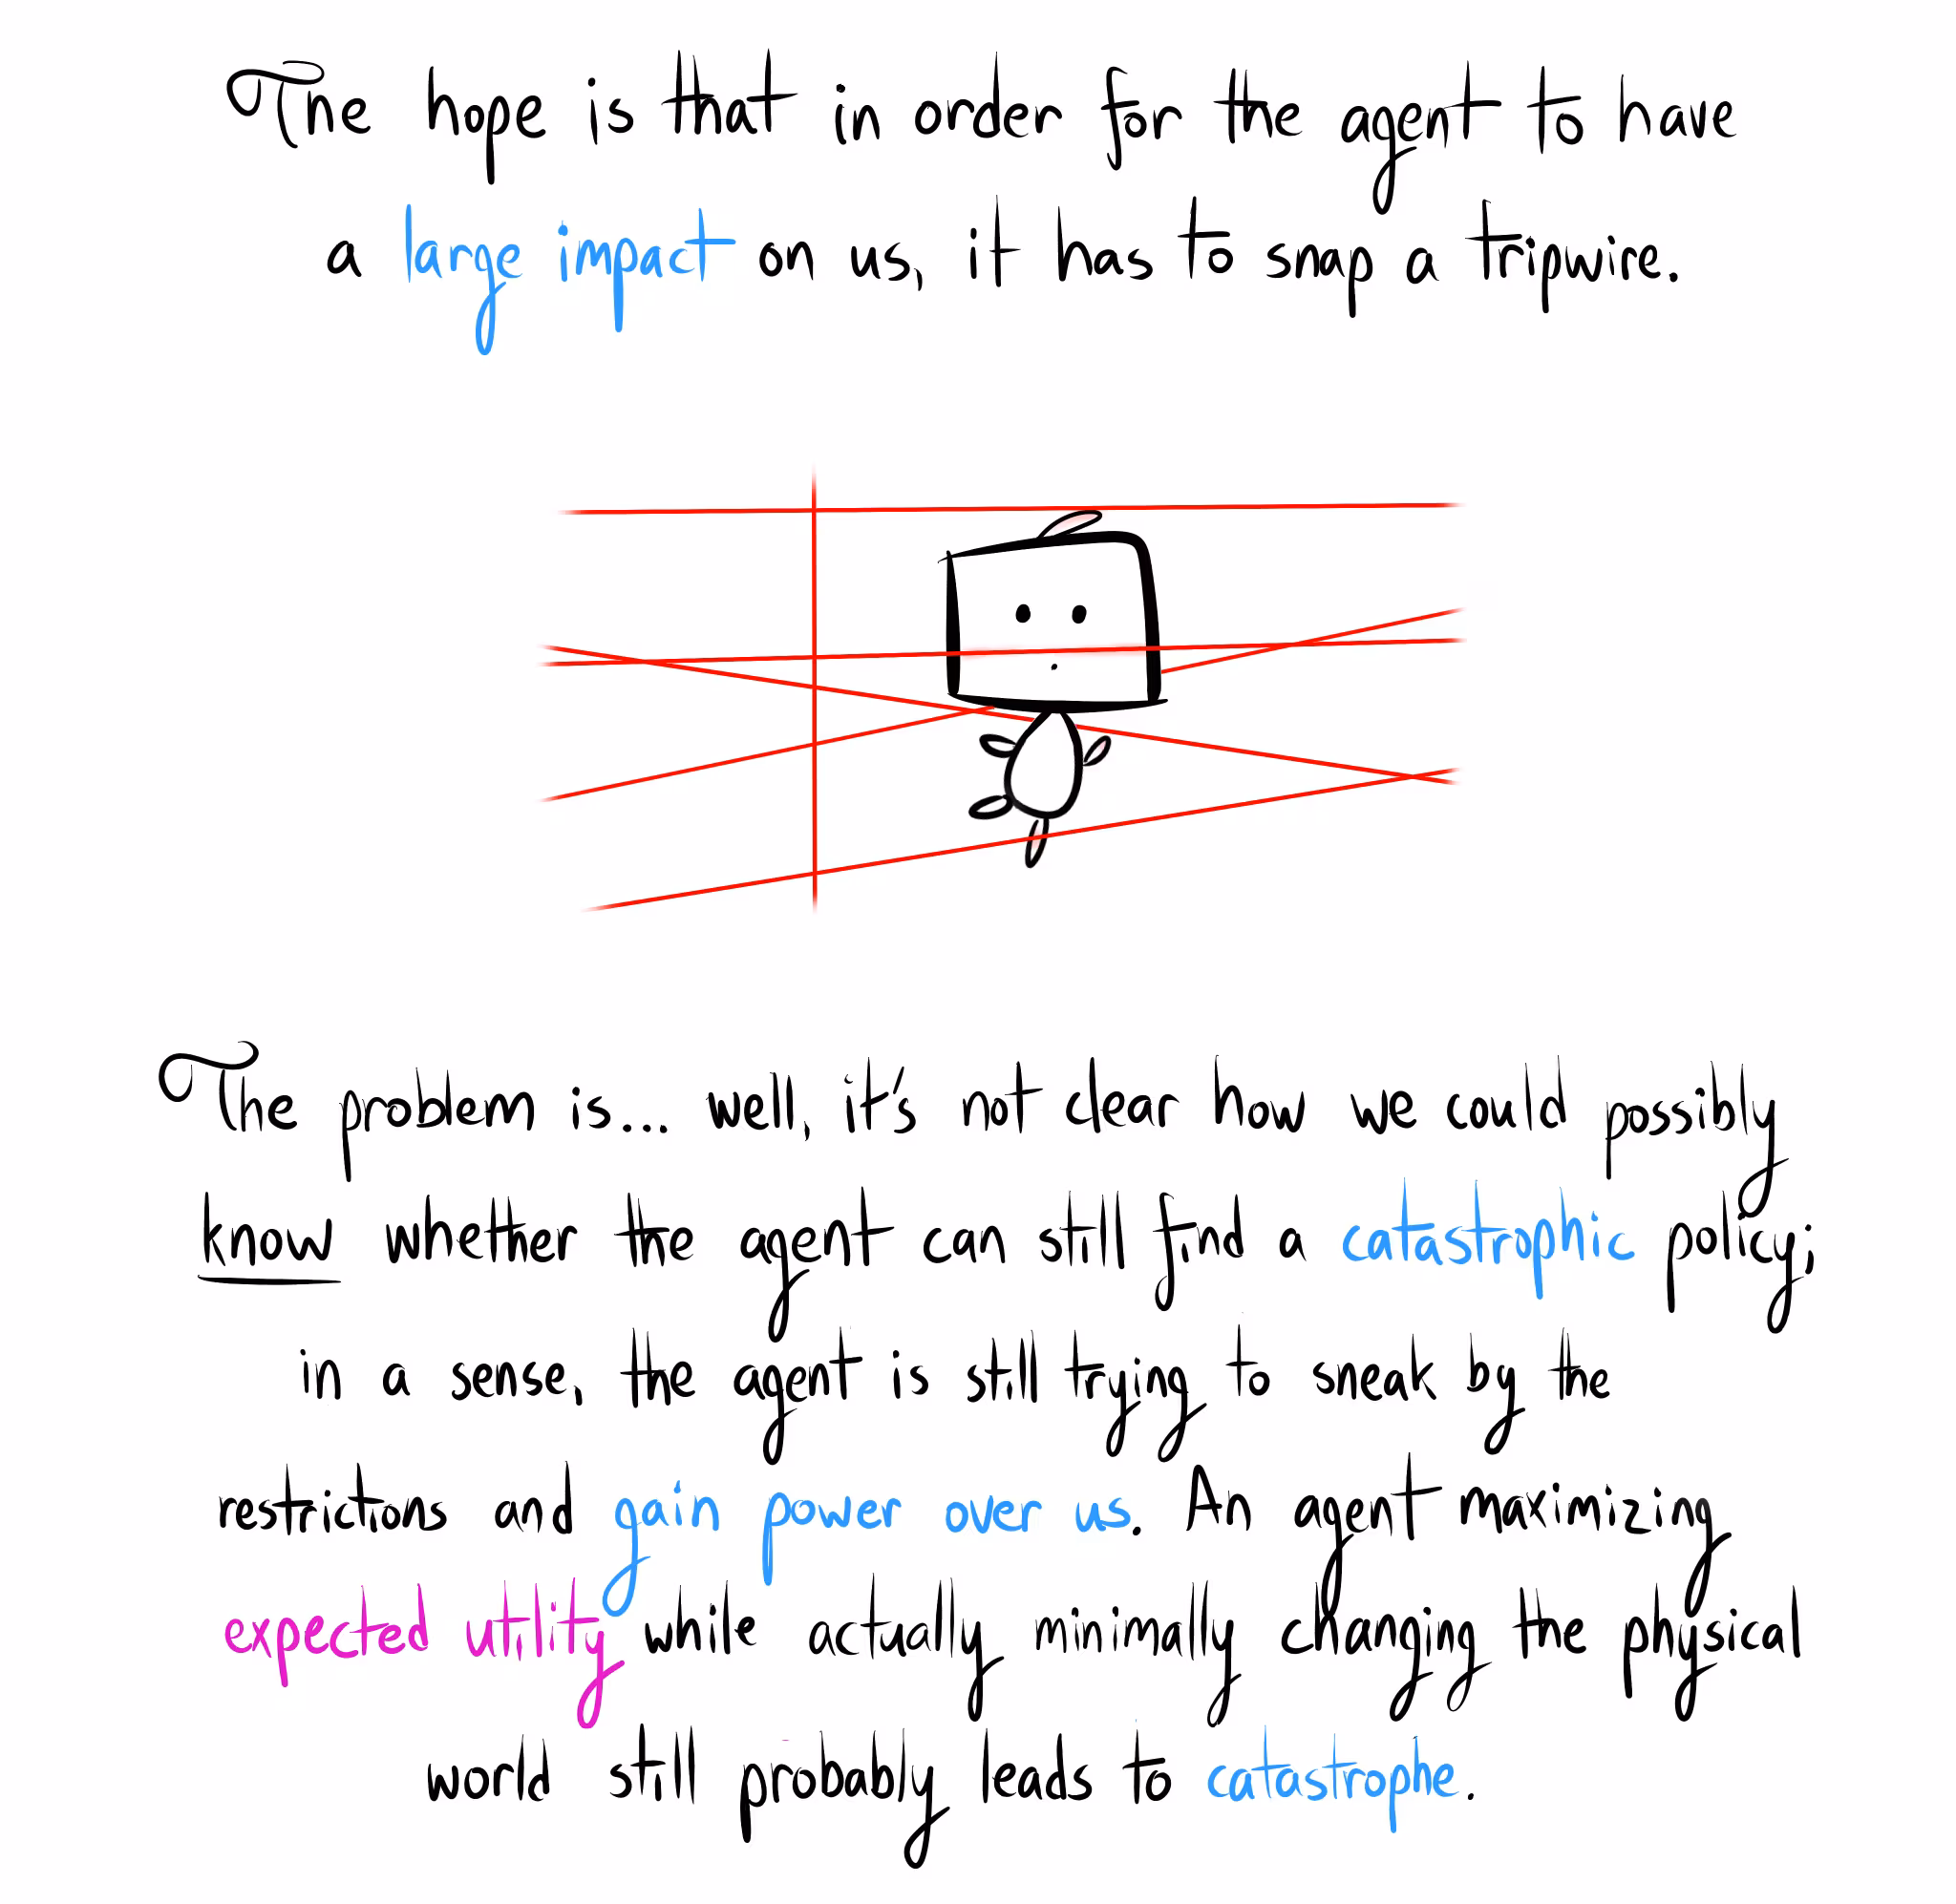 The hope is that in order for the agent to have
a large impact on us, it has to snap a tripwire.
The problem is... well, it's not clear how we could possibly
know whether the agent can still find a catastrophic policy;
in a sense, the agent is still trying to sneak by the
restrictions and gain power over us. An agent maximizing
expected utility while actually minimally changing the physical
world still probably leads to catastrophe.